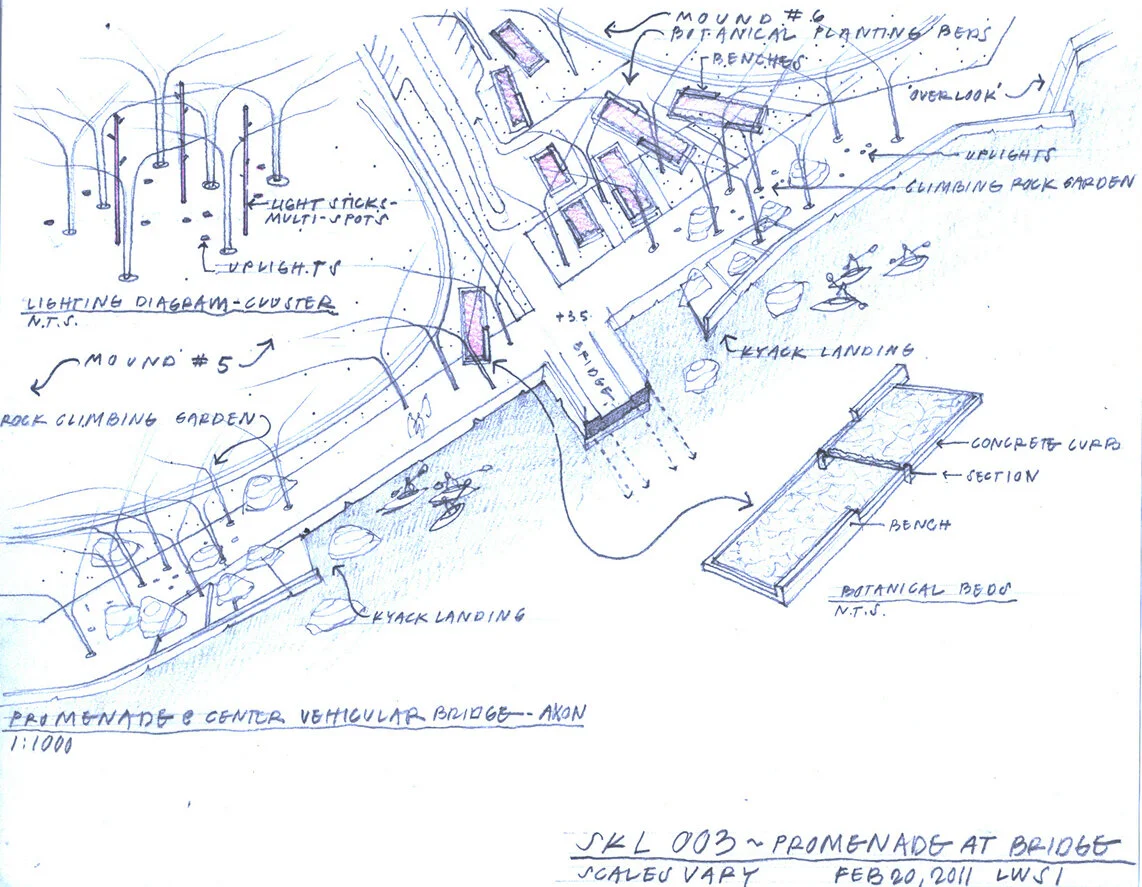 MOUND #6
BOTANICAL PLANTING BEDS
BENCHES
'OVERLOOK'
UPLIGHTS
CLIMBING ROCK GARDEN
LIGHT STICKS-
MULTI-SPOTS
UPLIGHTS
LIGHTING DIAGRAM-CLUSTER
N.T.S.
+3.5
BRIDGE
KYACK LANDING
MOUND #5
ROCK CLIMBING GARDEN
CONCRETE CURB
SECTION
BENCH
BOTANICAL BEDS
N.T.S.
KYACK LANDING
PROMENADE @ CENTER VEHICULAR BRIDGE - AXON
1:1000
SKL 003 ~ PROMENADE AT BRIDGE
SCALES VARY FEB 20, 2011 LWSI